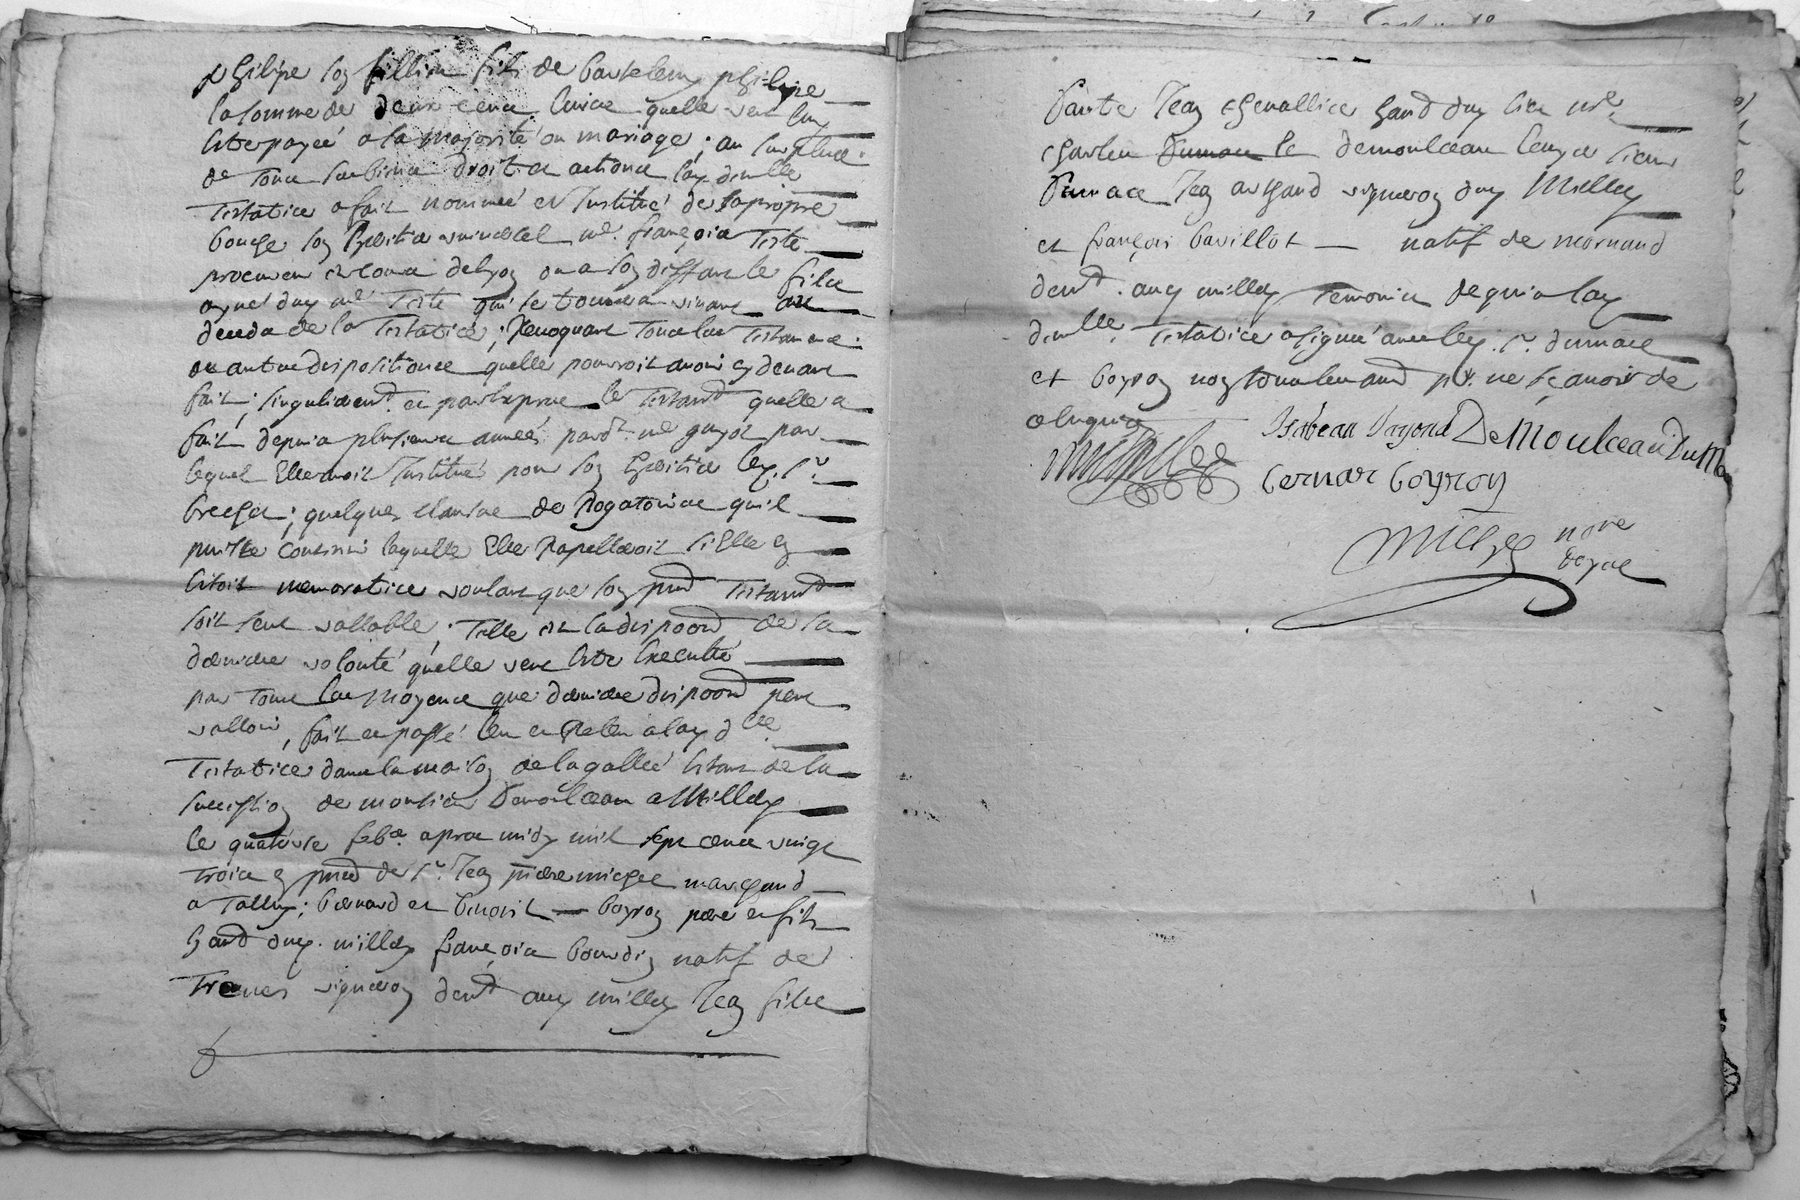 philipe son fillieu fils de bartelemy philipe
la somme de deux cens livres quelle veut luy
estre payée a sa majorité ou mariage ; au surplus
de tous ses biens droits et actions lad. dlle
Testatrice a fait nommé et Institué de sa propre
bouche son heritier universel me. françois Teste
procureur es cours de lyon ou a son deffaut le fils
ayné dud me Teste qui se trouvera vivant au
deceds de la Testatrice ; Revoquant tous les Testamens
ou autres dispositions quelle pourroit avoir cy devant
fait ; singulierement et par exprès le Testament quelle a
fait depuis plusieurs années pardt. me guyot par
lequel Elle avoit Institué pour son heritier led. sr.
; quelques clauses de Rogatoires quil
puisse contenir laquelle Elle Rapelleroit si Elle en
estoit memoratrice voulant que son pnt Testament
soit seul vallable ; Telle est la dispoon de sa
derniere volonté quelle veut estre executée
par tous les moyens que derniere dispoon peut
valloir, fait et passé leu et Releu a lad dlle
Testatrice dans la maison de la gallée estant de la
succession de monsieur Demoulceau a Millery
le quatorse feb. apres midy mil sept cens vingt
trois en pnce de sr. Jean pierre michel marchand
a Talluy ; bernard et benoist boyron pere et fils
hant dud. millery françois bourdin natif de
Treves vigneron demt aud millery Jean fils
Jean chevallier hant dud lieu me.
charles Dumas le demoulceau lenge sieur
Dumace Jean archand vigneron dud Millery
et françois bavillot natif de mornand
demt. aud millery Temoins requis lad
dlle. Testatrice a signé avec led. sr. dumace
et boyron non tous les autres pr. ne sçavoir de
ce enquis
Isabeau Demoulceau DuMa
bernar boyron
nore
royal